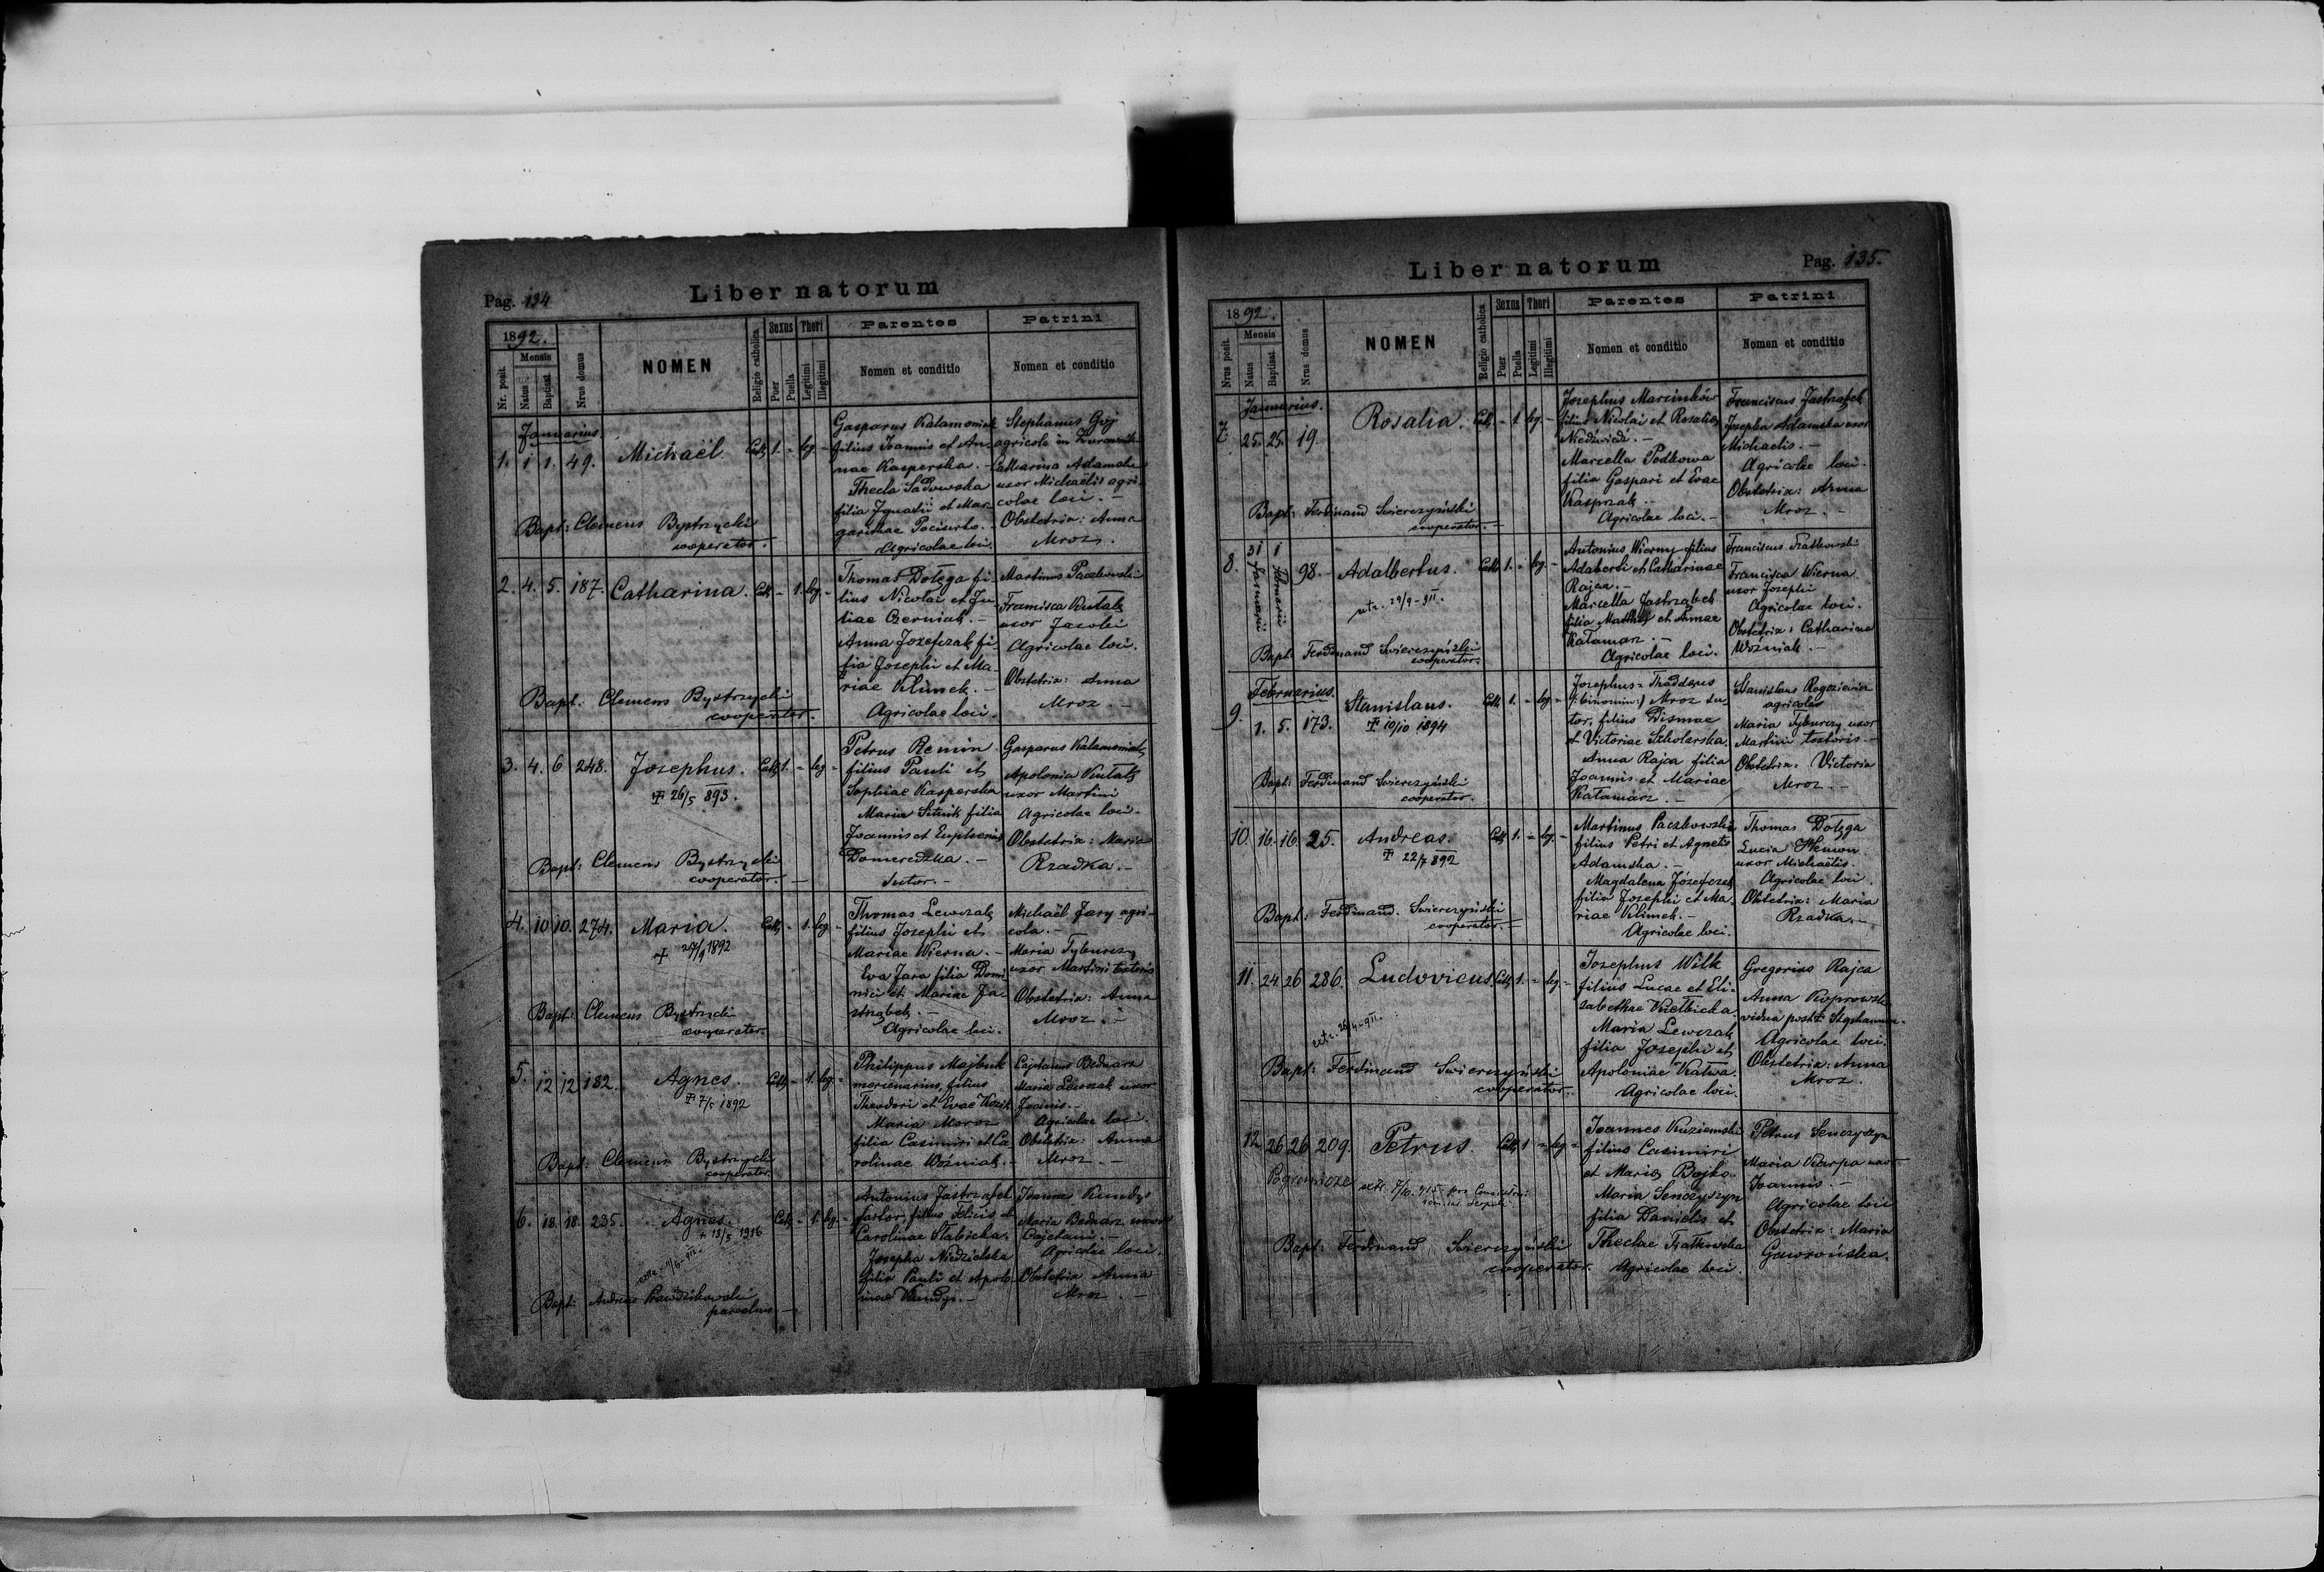 Pag. 134
Liber natorum
1892.
Nr. posit.
Mensis
Natus
Baptisat.
Nrus domus
NOMEN
Religio catholica
Sexus
Puer
Puella
Thori
Legitimi
Illegitimi
Parentes
Nomen et conditio
Patrini
Nomen et conditio
Januarius
1. 1 1. 49. Michaël. Cath 1. - leg -
Gasparus Kalamoniak
filius Joannis et An-
nae Kasperska. -
Thecla Sadowska
filia Ignatii et Mar-
garithae
Agricolae loci.
Stephanus Goj
agricola in
Catharina Adamska
uxor Michaëlis agri-
colae loci. -
Obstetrix: Anna
Mroz.
Bapt: Clemens Bystrzycki
cooperator.
2. 4. 5. 187. Catharina. Cath - 1. leg. -
Thomas Dołęga fi-
lius Nicolai et Ju-
liae Czerniak. -
Anna Jozefczak fi-
lia Josephi et Ma-
riae Klimek. -
Agricolae loci.
Martinus Paczkowski
Francisca Kutak
uxor Jacobi
Agricolae loci.
Obstetrix: Anna
Mroz. -
Bapt. Clemens Bystrzycki
cooperator.
3. 4. 6 248. Josephus. Cath 1. - leg -
26/5 893.
Petrus Remin
filius Pauli et
Sophiae Kasperska
Maria Sitnik filia
Joannis et Euphemiae
Domeredzka. -
Sutor. -
Gasparus Kalamoniak
Apolonia Kutak
uxor Martini
Agricolae loci.
Obstetrix: Maria
Rzadka. -
Bapt: Clemens Bystrzycki
cooperator. -
4. 10 10. 274. Maria. Cath - 1. leg -
+ 27/9 1892
Thomas Lewczak
filius Josephi et
Mariae Wierna. -
Eva Jara filia Domi-
nici et Mariae Ja-
strząbek. -
Agricolae loci.
Michaël Jary agri-
cola. -
Maria Tyburczy
uxor Martini textoris
Obstetrix: Anna
Mroz. -
Bapt: Clemens Bystrzycki
cooperator.
5. 12 12 182. Agnes. Cath - 1. leg. -
7/5 1892
Philippus Majbuk
mercenarius, filius
Theodori et Evae Kozik
Maria Moroz
filia Casimiri et Ca-
rolinae Woźniak. -
Cajetanus Bednarz
Maria Lewczak uxor
Joannis. -
Agricolae loci
Obstetrix: Anna
Mroz. -
Bapt: Clemens Bystrzycki
cooperator.
6. 18. 18. 235. Agnes. Cath - 1. leg. -
+ 13/5 1916
Antonius Jastrząbek
sartor, filius Felicis et
Carolinae Słabicka.
Josepha Niedzielska
filia Pauli et Apolo-
niae Kundys. -
Joannes Kundys
Maria Bednarz uxor
Cajetani. -
Agricolae loci.
Obstetrix Anna
Mroz. -
Bapt: Andreas Prawdzikowski
parochus -
Liber natorum
Pag. 135.
1892.
Nrus posit.
Mensis
Natus
Baptisat.
Nrus domus
NOMEN
Religio catholica
Sexus
Puer
Puella
Thori
Legitimi
Illegitimi
Parentes
Nomen et conditio
Patrini
Nomen et conditio
Januarius.
7. 25. 25. 19. Rosalia. Cath - 1 leg. -
Josephus Marcinków
filius Nicolai et Rosaliae
Niedźwiedź. -
Marcella Podkowa
filia Gaspari et Evae
Kasprzak. -
Agricolae loci. -
Franciscus Jastrząbek
Josepha Adamska uxor
Michaelis. -
Agricolae loci.
Obstetrix: Anna
Mroz. -
Bapt: Ferdinand Swierczyński
cooperator. -
8. 31 Januarii 1 Februarii 98. Adalbertus. Cath 1. - leg. -
Antonius Wierny filius
Adalberti et Catharinae
Rajca. -
Marcella Jastrząbek
filia Matthiae et Annae
Kałamarz. -
Agricolae loci.
Franciscus Fiałkowski
Francisca Wierna
uxor Josephi
Agricolae loci.
Obstetrix: Catharina
Woźniak. -
Bapt: Ferdinand Swierczyński
cooperator.
Februarius.
9. 1. 5. 173. Stanislaus. Cath 1. - leg -
10/10 1894
Josephus-Thaddeus
(:binomin:) Mroz su-
tor, filius Dismae
et Victoriae Szkolarska.
Anna Rajca filia
Joannis et Mariae
Kałamarz. -
Stanislaus Rogoziewicz
agricola
Maria Tyburczy uxor
Martini textoris. -
Obstetrix: Victoria
Mroz. -
Bapt: Ferdinand Swierczyński
cooperator.
10. 16. 16. 25. Andreas. Cath 1. - leg. -
22/7 892
Martinus Paczkowski
filius Petri et Agnetis
Adamska. -
Magdalena Józefczak
filia Josephi et Ma-
riae Klimek. -
Agricolae loci.
Thomas Dołęga
Lucia
uxor Michaëlis.
Agricolae loci.
Obstetrix: Maria
Rzadka. -
Bapt: Ferdinand. Swierczyński
cooperator. -
11. 24. 26 286. Ludovicus. Cath 1. - leg. -
Josephus Wilk
filius Lucae et Eli-
sabethae Kiełbicka.
Maria Lewczak
filia Josephi et
Apoloniae Kałwa.
Agricolae loci.
Gregorius Rajca
Anna Koprowska
vidua post Stephanum.
Agricolae loci.
Obstetrix: Anna
Mroz.
Bapt: Ferdinand Swierczyński
cooperator.
12 26 26 209. Petrus. Cath 1 - leg -
Joannes Kuziemski
filius Casimiri
et Mariae Bojko.
Maria Senczyszyn
filia Danielis et
Theclae Fiałkowska
Agricolae loci.
Petrus Senczyszyn
Maria Karpa uxor
Joannis. -
Agricolae loci
Obstetrix: Maria
Gaworońska.
Bapt: Ferdinand Swierczyński
cooperator.